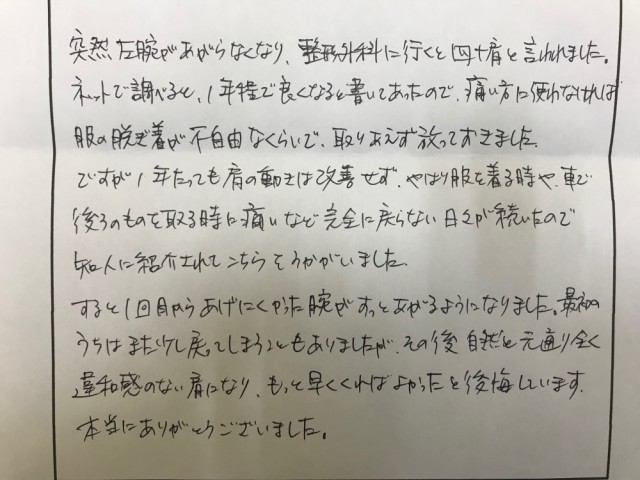 突然左腕があがらなくなり、整形外科に行くと四十肩と言われました。
ネットで調べると、1年程で良くなると書いてあったので、痛い方に使わなければ
服の脱ぎ着が不自由なくらいで、取りあえず放っておきました。
ですが1年たっても肩の動きは改善せず、やはり服を着る時や、車で
後ろのものを取る時に痛いなど完全に戻らない日々が続いたので
知人に紹介されてこちらへうかがいました。
すると1回目からあげにくかった腕がすっとあがるようになりました。最初の
うちはまた少し戻ってしまうこともありましたが、その後自然と元通り全く
違和感のない肩になり、もっと早くくればよかったと後悔しています。
本当にありがとうございました。